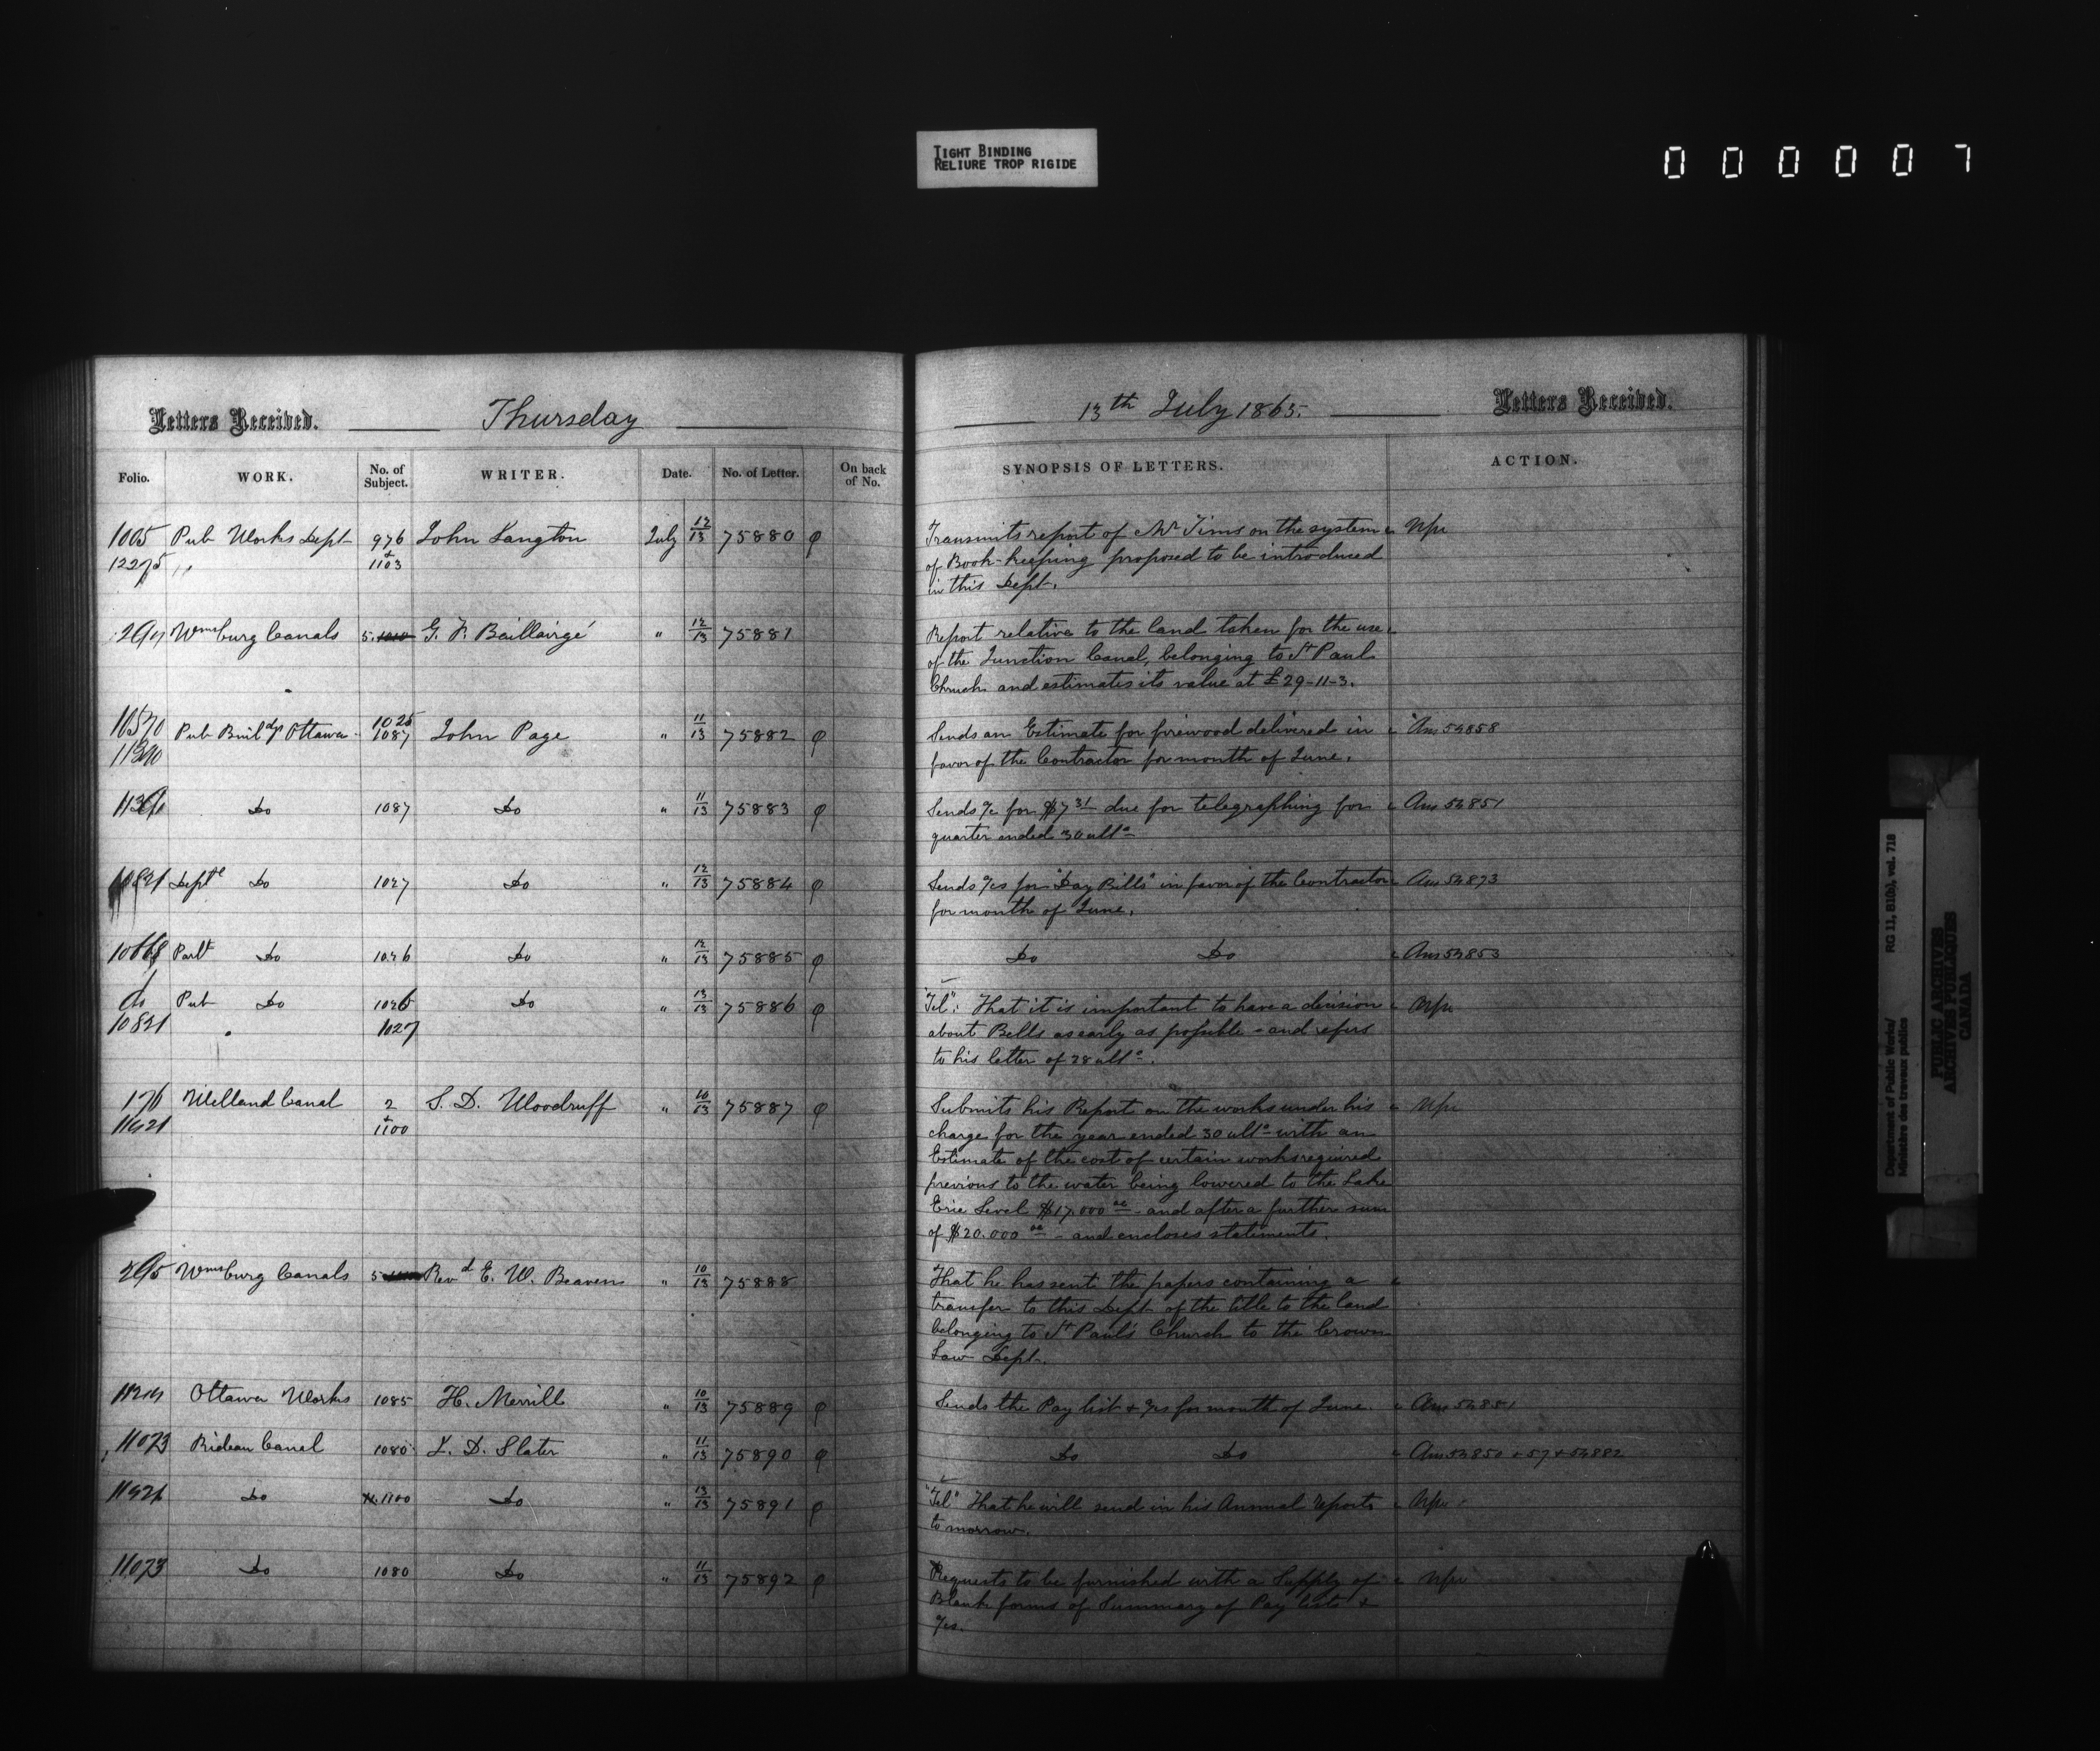 TIGHT BINDING
RELIURE TROP RIGIDE
000007
Letters Received. Thursday 13th July 1865. Letters Received.
Folio. WORK. No. of Subject. WRITER. Date. No. of Letter. On back of No. SYNOPSIS OF LETTERS. ACTION.
1005 Pub Works Dept 976 John Langton July 12/13 75880 Transmits report of Mr Tims on the system
12275 " + 1103 of Book-keeping proposed to be introduced
in this Dept.
Wmsburg Canals 5. G. F. Baillairgé " 12/13 75881 Report relative to the land taken for the use
of the Junction Canal, belonging to St Paul
Church and estimates its value at £29-11-3.
10570 Pub Buildgs Ottawa 1025 1087 John Page " 11/13 75882 Sends an Estimate for firewood delivered in Ans 54858
favor of the Contractor for month of June.
Do 1087 Do " 11/13 75883 Sends a/c for $7 31 due for telegraphing for Ans 54851
quarter ended 30 ulto
10821 Deptl Do 1027 Do " 12/13 75884 Sends a/cs for "Day Bills" in favor of the Contractor Ans 54873
for month of June.
Parlt Do 1026 Do " 12/13 75885 Do Do Ans 54853
do Pub Do 1026 Do " 13/13 75886 "Tel": That it is important to have a decision
10821 1027 about Bells as early as possible - and refers
to his letter of 28 ulto.
176 Welland Canal 2 S. D. Woodruff " 10/13 75887 Submits his Report on the works under his
11421 + 1100 charge for the year ended 30 ulto with an
Estimate of the cost of certain works required
previous to the water being lowered to the Lake
Erie Level $17.000 00 - and after a further sum
of $20.000 00 - and encloses statements.
295 Wmsburg Canals 5 Revd E. W. Beaven " 10/13 75888 That he has sent the papers containing a
transfer to this Dept of the title to the land
belonging to St Paul's Church to the Crown
Law Dept.
Ottawa Works 1085 H. Merrill " 10/13 75889 Sends the Pay list + a/cs for month of June. Ans 54881
11073 Rideau Canal 1080 L. D. Slater " 11/13 75890 Do Do Ans 54850 + 57 + 54882
11421 Do 1100 Do " 13/13 75891 "Tel" That he will send in his Annual reports
to morrow.
11073 Do 1080 Do " 11/13 75892 Requests to be furnished with a Supply of
Blank forms of Summary of Pay lists +
a/cs.
Department of Public Works/ RG 11, B1(b), vol. 718
Ministère des travaux publics
PUBLIC ARCHIVES
ARCHIVES PUBLIQUES
CANADA